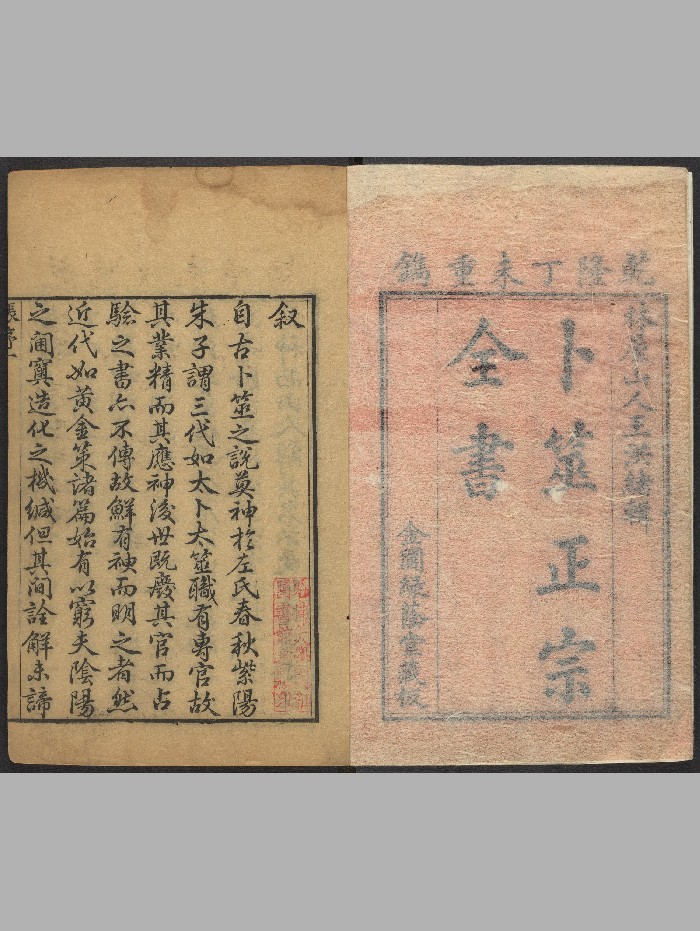 乾隆丁未重鐫
林屋山人王洪緒輯
卜筮正宗
全書
金閶綠蔭堂藏板
叙
自古卜筮之說莫神於左氏春秋紫陽
朱子謂三代如太卜太筮職有專官故
其業精而其應神後世既廢其官而占
驗之書亦不傳故鮮有神而明之者然
近代如黃金策諸篇始有以窮夫陰陽
之闔寞造化之機緘但其間詮解未諦
張序一